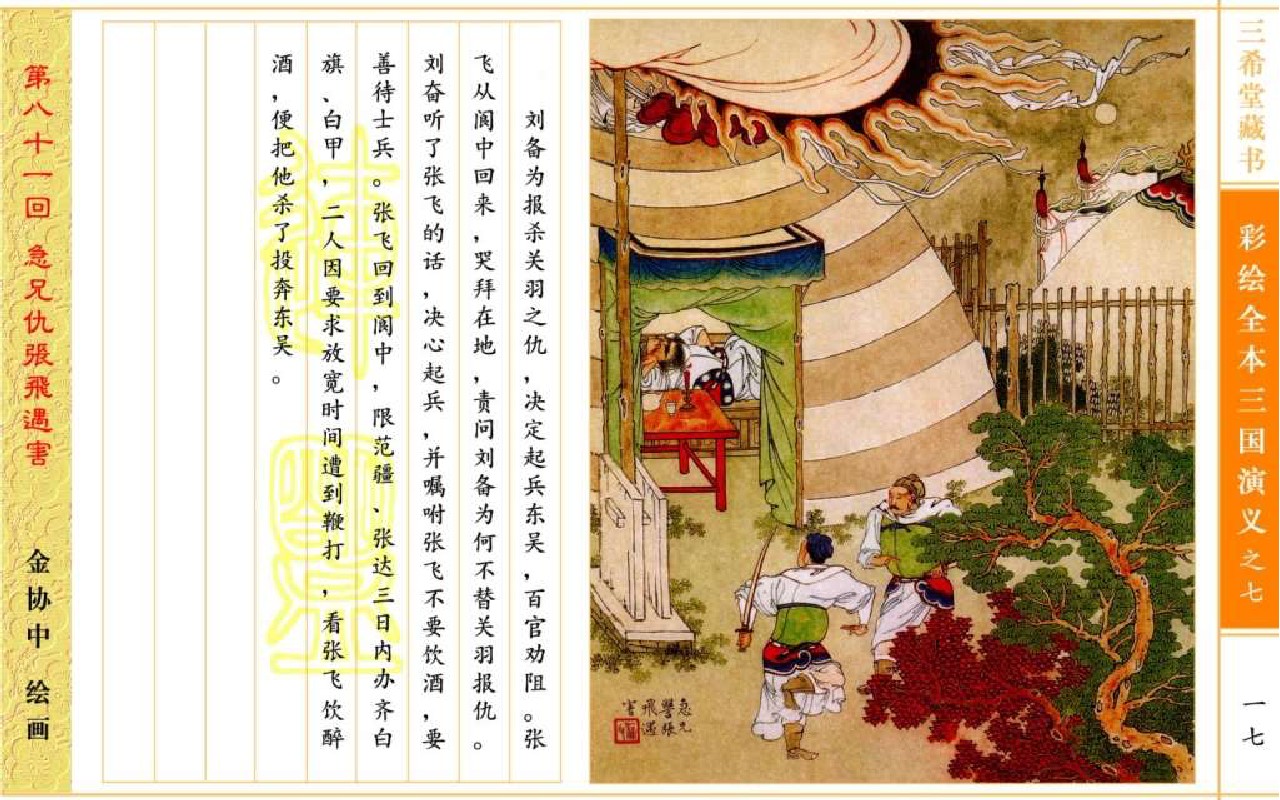 三希堂藏书
彩绘全本三国演义之七
一七
急兄
讐張
飛遇
害
刘备为报杀关羽之仇，决定起兵东吴，百官劝阻。张
飞从阆中回来，哭拜在地，责问刘备为何不替关羽报仇。
刘奋听了张飞的话，决心起兵，并嘱咐张飞不要饮酒，要
善待士兵。张飞回到阆中，限范疆、张达三日内办齐白
旗、白甲，二人因要求放宽时间遭到鞭打，看张飞饮醉
酒，便把他杀了投奔东吴。
第八十一回 急兄仇張飛遇害
金协中 绘画